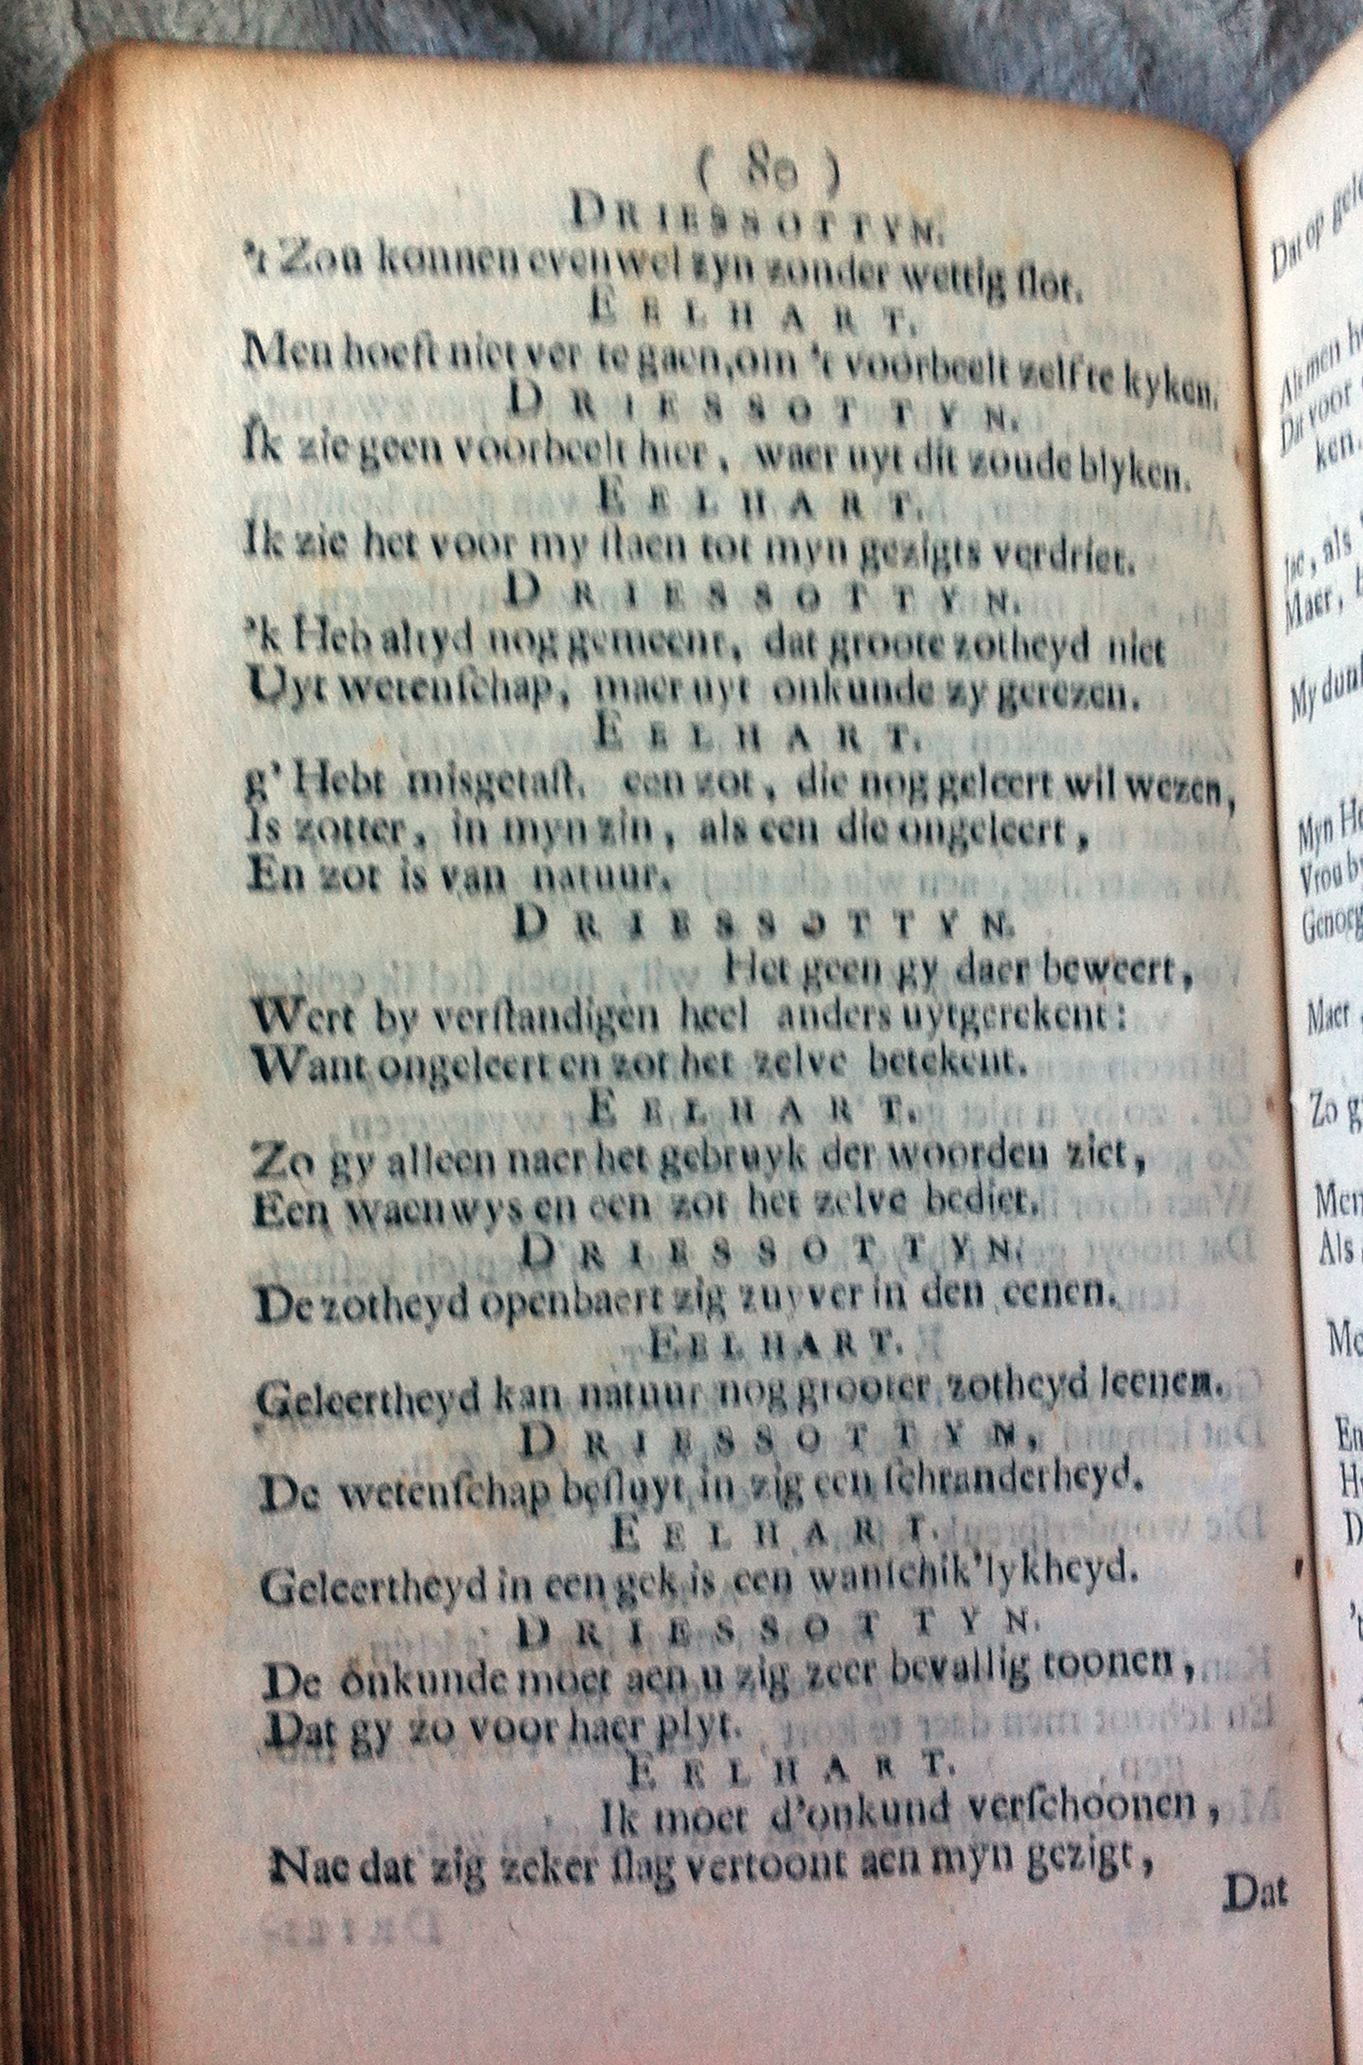 ( 80 )
DRIESSOTTYN.
't Zou konnen evenwel zyn zonder wettig slot.
EELHART.
Men hoeft niet ver te gaen, om 't voorbeelt zelf te kyken.
DRIESSOTTYN.
Ik zie geen voorbeelt hier, waer uyt dit zoude blyken.
EELHART.
Ik zie het voor my staen tot myn gezigts verdriet.
DRIESSOTTYN.
'k Heb altyd nog gemeent, dat groote zotheyd niet
Uyt wetenschap, maer uyt onkunde zy gerezen.
EELHART.
g' Hebt misgetast. een zot, die nog geleert wil wezen,
Is zotter, in myn zin, als een die ongeleert,
En zot is van natuur.
DRIESSOTTYN.
Het geen gy daer beweert,
Wert by verstandigen heel anders uytgerekent:
Want ongeleert en zot het zelve betekent.
EELHART.
Zo gy alleen naer het gebruyk der woorden ziet,
Een waenwys en een zot het zelve bediet.
DRIESSOTTYN.
De zotheyd openbaert zig zuyver in den eenen.
EELHART.
Geleertheyd kan natuur nog grooter zotheyd leenen.
DRIESSOTTYN.
De wetenschap besluyt in zig een schranderheyd.
EELHART.
Geleertheyd in een gek is een wanschik'lykheyd.
DRIESSOTTYN.
De onkunde moet aen u zig zeer bevallig toonen,
Dat gy zo voor haer plyt.
EELHART.
Ik moet d'onkund verschoonen,
Nae dat zig zeker slag vertoont aen myn gezigt,
Dat
Dat op
Als men
Dat voor
ken.
als
Maer,
My
Myn
Vrou
Maer
Zo
Men
Als
En